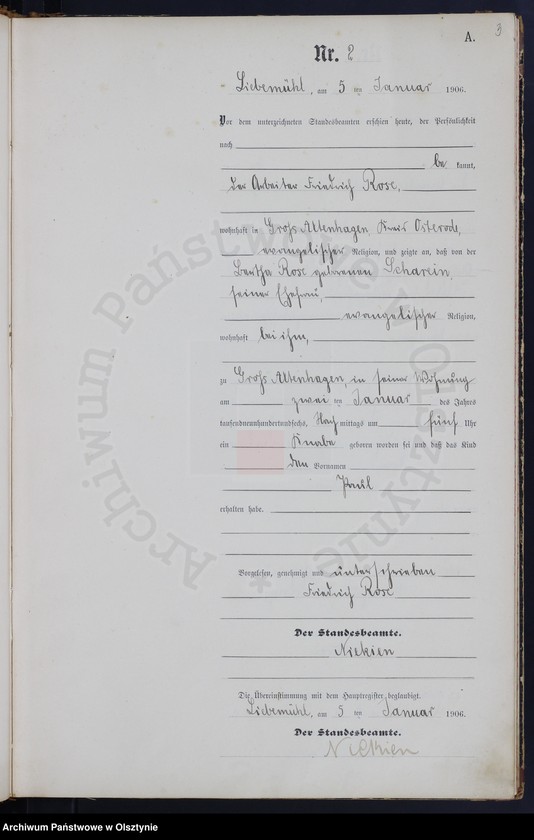 3
A.
Nr. 2
Liebemühl, am 5 ten Januar 1906.
Vor dem unterzeichneten Standesbeamten erschien heute, der Persönlichkeit
nach
be kannt,
der Arbeiter Friedrich Rose,
wohnhaft in Groß Altenhagen Kreis Osterode,
evangelischer Religion, und zeigte an, daß von der
Bertha Rose geborenen Scharein,
seiner Ehefrau,
evangelischer Religion,
wohnhaft bei ihm,
zu Groß Altenhagen, in seiner Wohnung
am zwei ten Januar des Jahres
tausendneunhundertundsechs, Nach mittags um fünf Uhr
ein Knabe geboren worden sei und daß das Kind
den Vornamen
Paul
erhalten habe.
Vorgelesen, genehmigt und unterschrieben
Friedrich Rose
Der Standesbeamte.
Nickien
Die Übereinstimmung mit dem Hauptregister beglaubigt.
Liebemühl, am 5 ten Januar 1906.
Der Standesbeamte.
Nickien
Archiwum Państwowe w Olsztynie
Archiwum Państwowe w Olsztynie